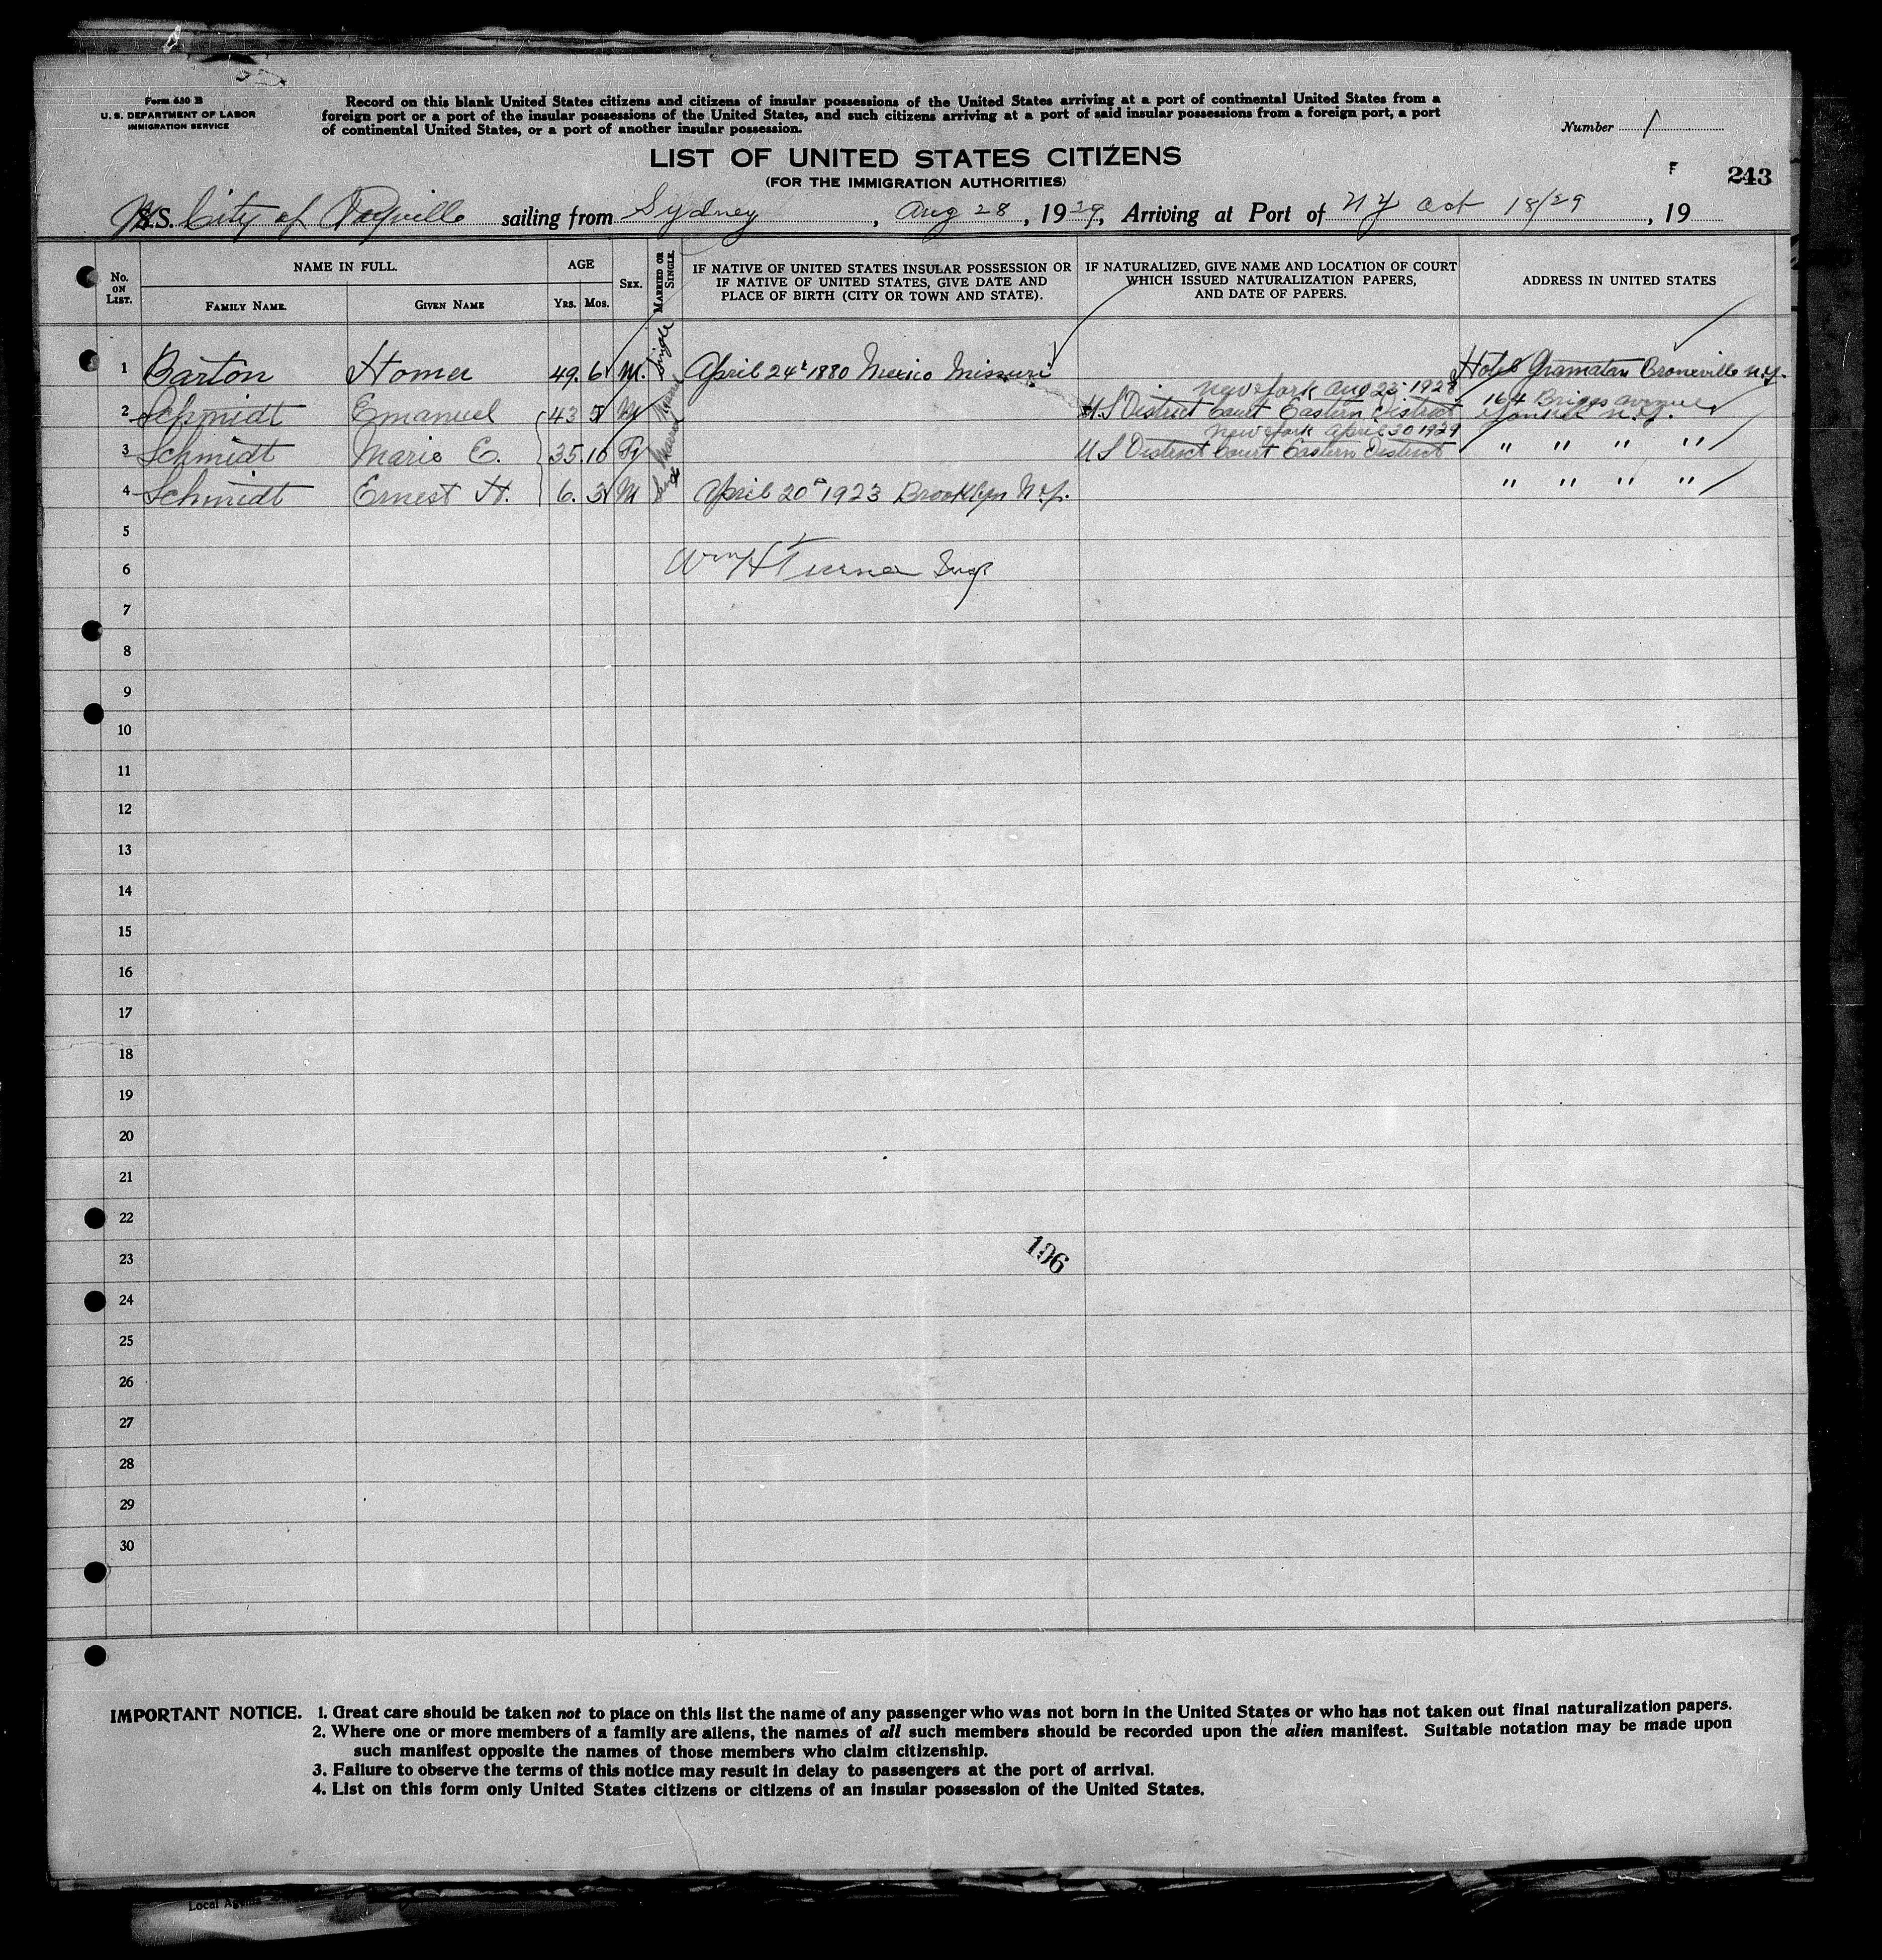 Form 630 B
U. S. DEPARTMENT OF LABOR
IMMIGRATION SERVICE
Record on this blank United States citizens and citizens of insular possessions of the United States arriving at a port of continental United States from a
foreign port or a port of the insular possessions of the United States, and such citizens arriving at a port of said insular possessions from a foreign port, a port
of continental United States, or a port of another insular possession.
Number 1
LIST OF UNITED STATES CITIZENS
(FOR THE IMMIGRATION AUTHORITIES)
F 243
S.S. City of Rayville sailing from Sydney, Aug 28, 1929, Arriving at Port of NY Oct 18/29, 19
No. ON LIST.
NAME IN FULL.
FAMILY NAME. GIVEN NAME
AGE
YRS. MOS.
SEX.
MARRIED OR SINGLE.
IF NATIVE OF UNITED STATES INSULAR POSSESSION OR
IF NATIVE OF UNITED STATES, GIVE DATE AND
PLACE OF BIRTH (CITY OR TOWN AND STATE).
IF NATURALIZED, GIVE NAME AND LOCATION OF COURT
WHICH ISSUED NATURALIZATION PAPERS,
AND DATE OF PAPERS.
ADDRESS IN UNITED STATES
1 Barton Homer 49. 6 M. Single April 24t 1880 Mexico Missouri Hotel Gramatan Bronxville N.Y.
New York Aug 23. 1928 164 Briggs Avenue
2 Schmidt Emanuel 43 5 M Married U.S District Court Eastern District Yonkers N.Y.
New York April 30 1929
3 Schmidt Marie E. 35. 10 F Married U S District Court Eastern District " " " "
4 Schmidt Ernest H. 6. 3 M Single April 20th 1923 Brooklyn N.Y. " " " "
5
6 Wm H Turner Insp
7
8
9
10
11
12
13
14
15
16
17
18
19
20
21
22
23
106
24
25
26
27
28
29
30
IMPORTANT NOTICE. 1. Great care should be taken not to place on this list the name of any passenger who was not born in the United States or who has not taken out final naturalization papers.
2. Where one or more members of a family are aliens, the names of all such members should be recorded upon the alien manifest. Suitable notation may be made upon
such manifest opposite the names of those members who claim citizenship.
3. Failure to observe the terms of this notice may result in delay to passengers at the port of arrival.
4. List on this form only United States citizens or citizens of an insular possession of the United States.
Local